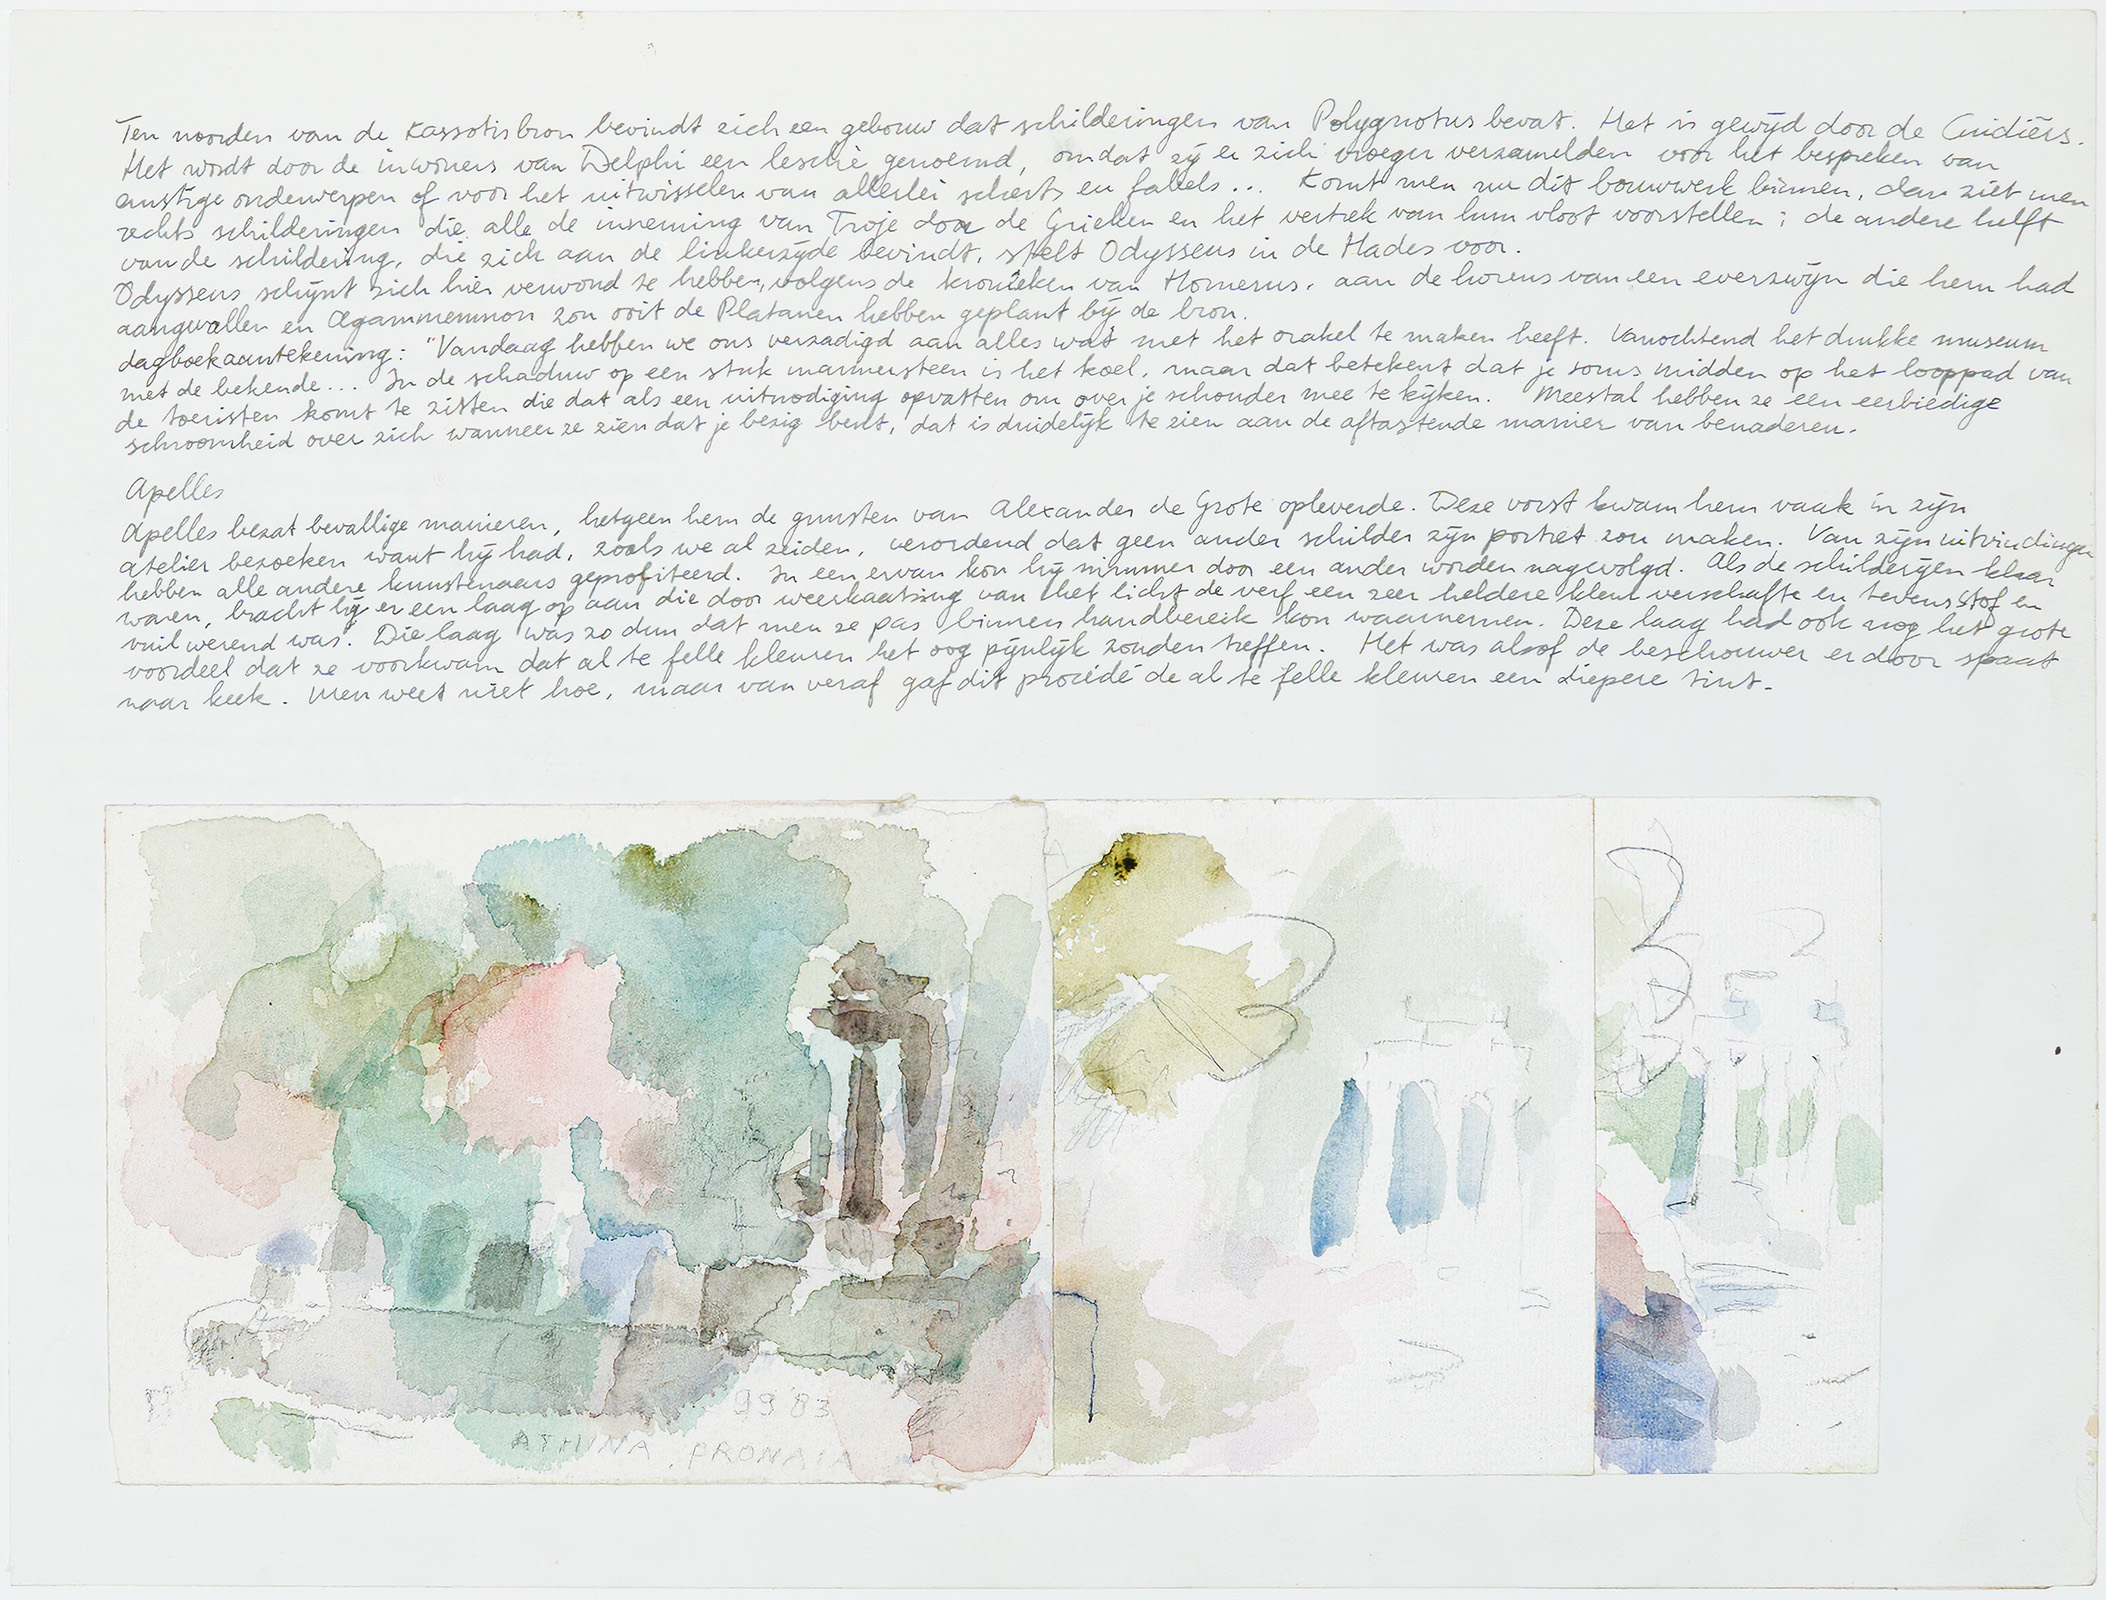 Ten noorden van de Kassotisbron bevindt zich een gebouw dat schilderingen van Polygnotus bevat. Het is gewijd door de Cnidiërs.
Het wordt door de inwoners van Delphi een leschè genoemd, omdat zij er zich vroeger verzamelden voor het bespreken van
ernstige onderwerpen of voor het uitwisselen van allerlei scherts en fabels... Komt men nu dit bouwwerk binnen, dan ziet men
rechts schilderingen die alle de inneming van Troje door de Grieken en het vertrek van hun vloot voorstellen; de andere helft
van de schildering, die zich aan de linkerzijde bevindt, stelt Odysseus in de Hades voor.
Odysseus schijnt zich hier verwond te hebben, volgens de kronieken van Homerus, aan de horens van een everzwijn die hem had
aangevallen en Agammemnon zou ooit de Platanen hebben geplant bij de bron.
dagboekaantekening: "Vandaag hebben we ons verzadigd aan alles wat met het orakel te maken heeft. Vanochtend het drukke museum
met de bekende... In de schaduw op een stuk marmersteen is het koel, maar dat betekent dat je soms midden op het looppad van
de toeristen komt te zitten die dat als een uitnodiging opvatten om over je schouder mee te kijken. Meestal hebben ze een eerbiedige
schroomheid over zich wanneer ze zien dat je bezig bent, dat is duidelijk te zien aan de aftastende manier van benaderen.
Apelles
Apelles bezat bevallige manieren, hetgeen hem de gunsten van Alexander de Grote opleverde. Deze vorst kwam hem vaak in zijn
atelier bezoeken want hij had, zoals we al zeiden, verordend dat geen ander schilder zijn portret zou maken. Van zijn uitvindingen
hebben alle andere kunstenaars geprofiteerd. In een ervan kon hij nimmer door een ander worden nagevolgd. Als de schilderijen klaar
waren, bracht hij er een laag op aan die door weerkaatsing van het licht de verf een zeer heldere kleur verschafte en tevens stof en
vuil werend was. Die laag was zo dun dat men ze pas binnen handbereik kon waarnemen. Deze laag had ook nog het grote
voordeel dat ze voorkwam dat al te felle kleuren het oog pijnlijk zouden treffen. Het was alsof de beschouwer er door spaat
naar keek. Men weet niet hoe, maar van veraf gaf dit procédé de al te felle kleuren een diepere tint.
99'83
ATHINA PRONAIA